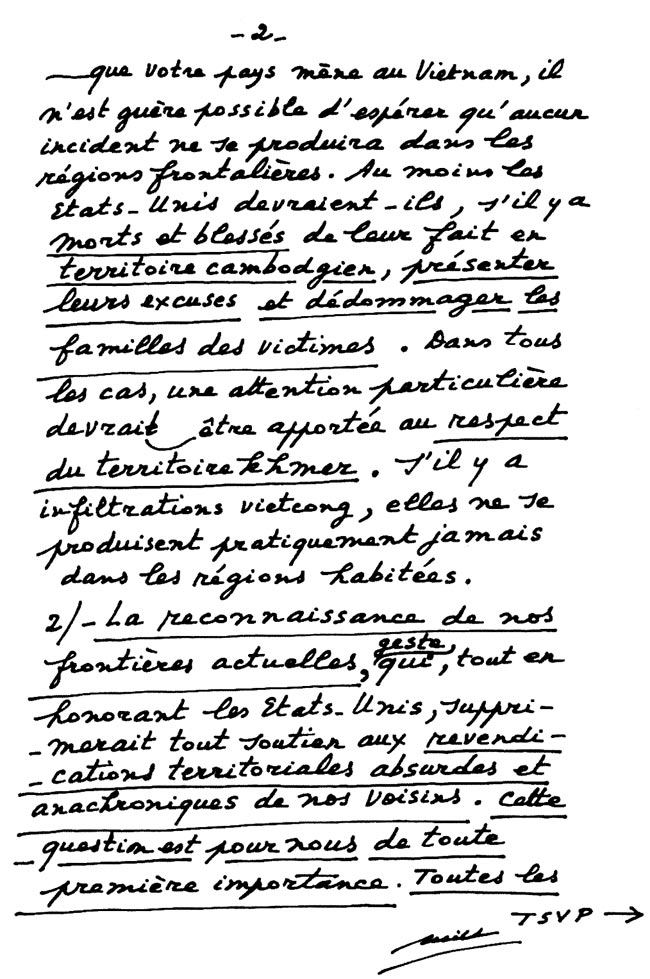 -2-
que votre pays mène au Vietnam, il
n'est guère possible d'espérer qu'aucun
incident ne se produira dans les
régions frontalières. Au moins les
Etats-Unis devraient-ils, s'il y a
morts et blessés de leur fait en
territoire cambodgien, présenter
leurs excuses et dédommager les
familles des victimes. Dans tous
les cas, une attention particulière
devrait être apportée au respect
du territoire khmer. S'il y a
infiltrations vietcong, elles ne se
produisent pratiquement jamais
dans les régions habitées.
2/- La reconnaissance de nos
frontières actuelles, geste qui, tout en
honorant les Etats-Unis, suppri-
-merait tout soutien aux revendi-
-cations territoriales absurdes et
anachroniques de nos voisins. Cette
question est pour nous de toute
première importance. Toutes les
TSVP →